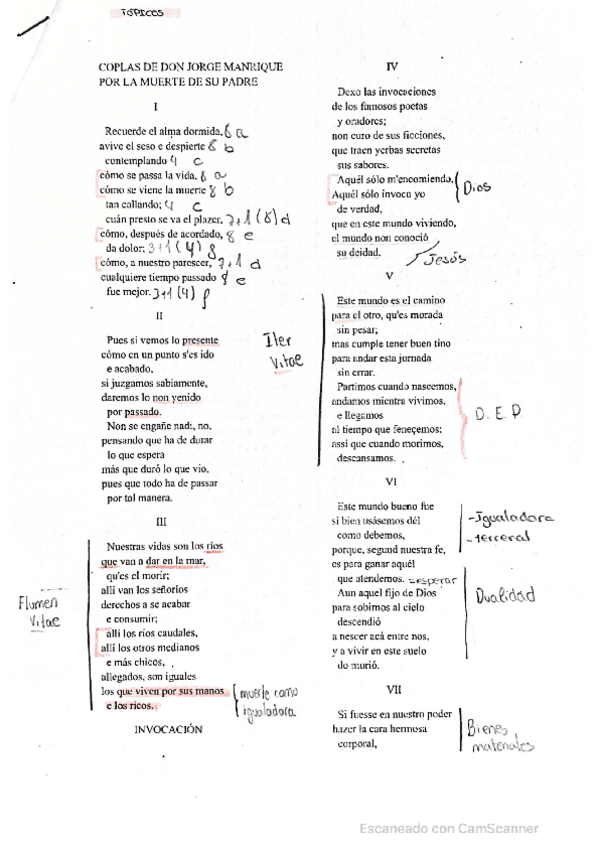 TÓPICOS
COPLAS DE DON JORGE MANRIQUE
POR LA MUERTE DE SU PADRE
I
Recuerde el alma dormida, 8 a
avive el seso e despierte 8 b
contemplando 4 c
cómo se passa la vida, 8 a
cómo se viene la muerte 8 b
tan callando; 4 c
cuán presto se va el plazer, 7+1(8) d
cómo, después de acordado, 8 e
da dolor; 3+1(4) f
cómo, a nuestro parescer, 7+1 d
cualquiere tiempo passado 8 e
fue mejor. 3+1(4) f
II
Pues si vemos lo presente
cómo en un punto s'es ido
e acabado,
si juzgamos sabiamente,
daremos lo non venido
por passado.
Non se engañe nadi, no,
pensando que ha de durar
lo que espera
más que duró lo que vio,
pues que todo ha de passar
por tal manera.
Iter
Vitae
III
Nuestras vidas son los ríos
que van a dar en la mar,
qu'es el morir;
allí van los señoríos
derechos a se acabar
e consumir;
allí los ríos caudales,
allí los otros medianos
e más chicos,
allegados, son iguales
los que viven por sus manos
e los ricos.
Flumen
Vitae
muerte como
igualadora
INVOCACIÓN
IV
Dexo las invocaciones
de los famosos poetas
y oradores;
non curo de sus ficciones,
que traen yerbas secretas
sus sabores.
Aquél sólo m'encomiendo,
Aquél sólo invoco yo
de verdad,
que en este mundo viviendo,
el mundo non conoció
su deidad.
Dios
Jesús
V
Este mundo es el camino
para el otro, qu'es morada
sin pesar;
mas cumple tener buen tino
para andar esta jornada
sin errar.
Partimos cuando nascemos,
andamos mientra vivimos,
e llegamos
al tiempo que feneçemos;
assí que cuando morimos,
descansamos.
D. E. P.
VI
Este mundo bueno fue
si bien usásemos dél
como debemos,
porque, segund nuestra fe,
es para ganar aquél
que atendemos. =esperar
Aun aquel fijo de Dios
para sobirnos al cielo
descendió
a nescer acá entre nos,
y a vivir en este suelo
do murió.
-Igualadora
-terceral
Dualidad
VII
Si fuesse en nuestro poder
hazer la cara hermosa
corporal,
Bienes
materiales
Escaneado con CamScanner